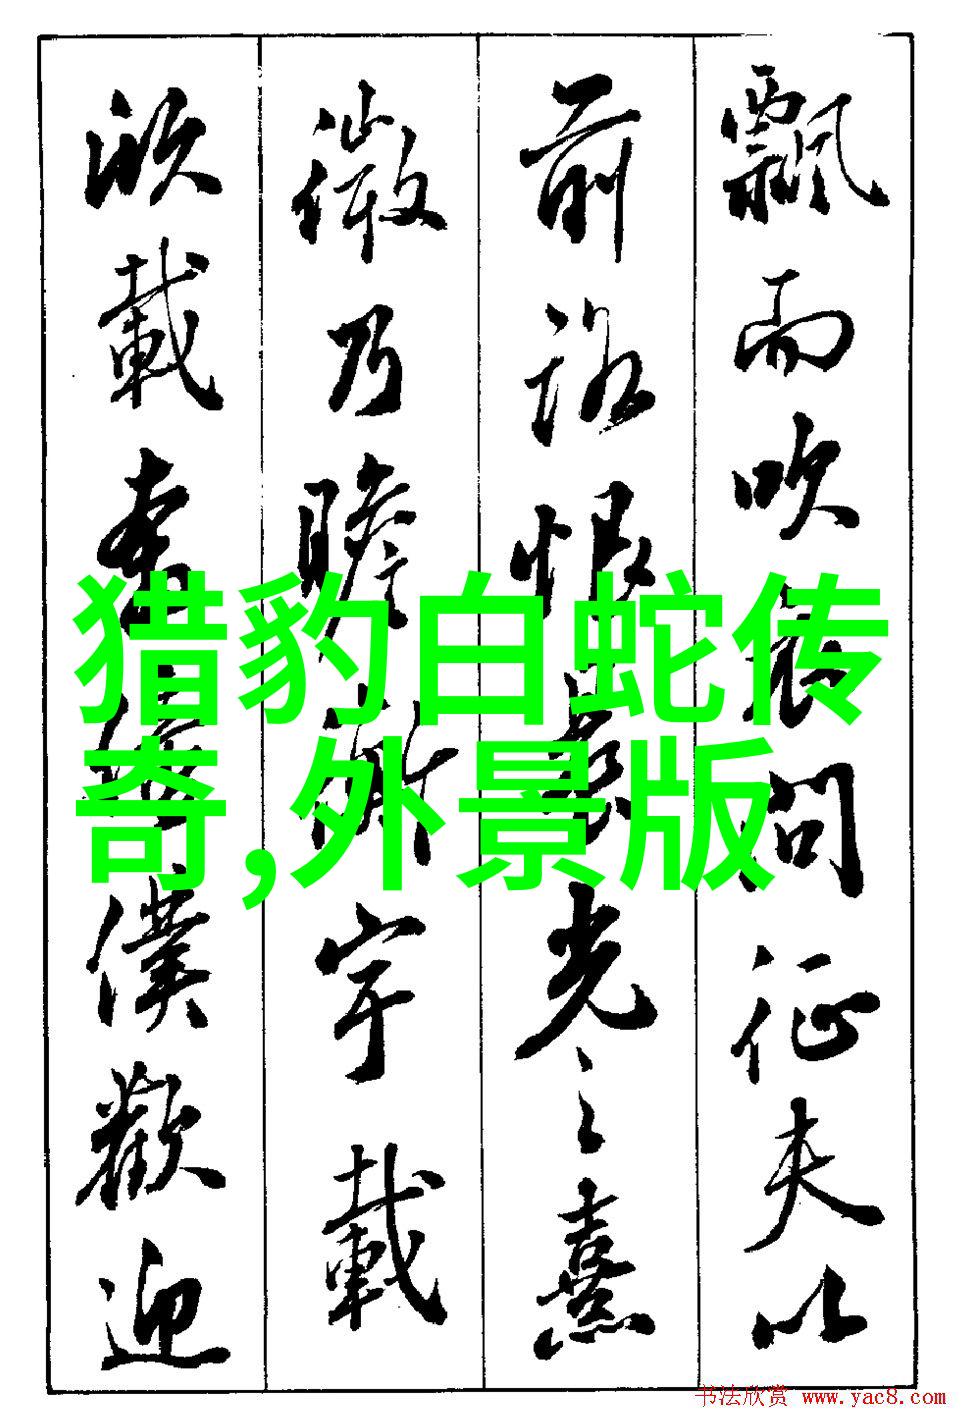 飄而吹衣问征夫以
前路恨晨光之熹
微乃瞻衡宇載
欣載奔僮僕歡迎
猎豹白蛇传
奇,外景版
书法欣赏 www.yac8.com